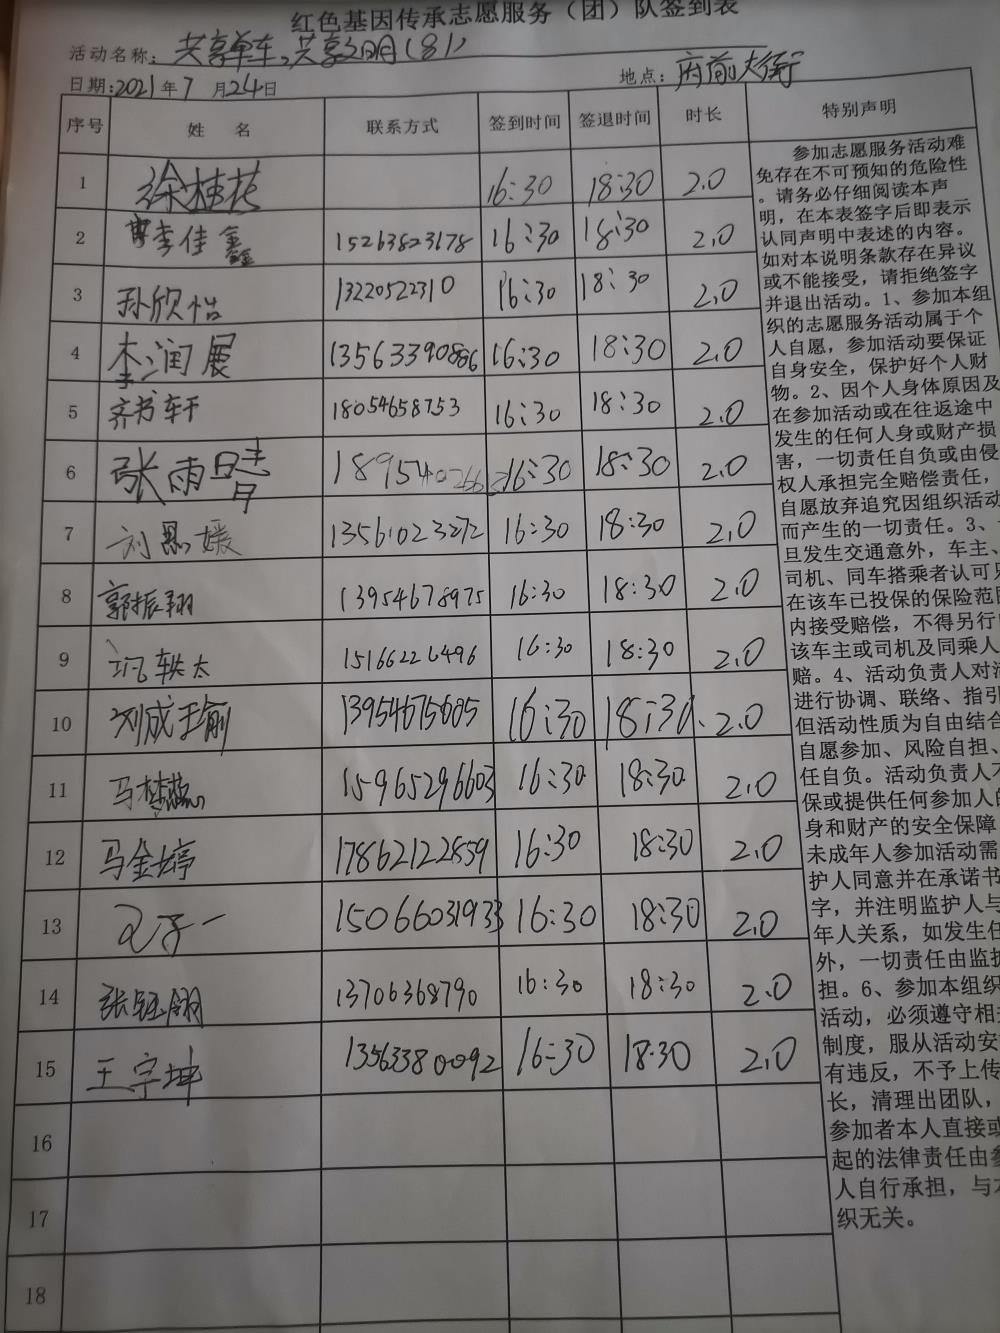 红色基因传承志愿服务（团）队签到表
活动名称：共享单车，共享文明（81）
日期：2021年7月24日 地点：府前大街
序号 姓 名 联系方式 签到时间 签退时间 时长 特别声明
1 徐桂花 16:30 18:30 2.0
2 李佳鑫 15263823178 16:30 18:30 2.0
3 孙欣怡 13220522310 16:30 18:30 2.0
4 李润展 16:30 18:30 2.0
5 齐书轩 18054658753 16:30 18:30 2.0
6 张雨 16:30 18:30 2.0
7 刘恩媛 13561023272 16:30 18:30 2.0
8 郭振翔 13954678975 16:30 18:30 2.0
9 15166226496 16:30 18:30 2.0
10 刘成 13954675605 16:30 18:30 2.0
11 马梦 15965296603 16:30 18:30 2.0
12 马金婷 17862122859 16:30 18:30 2.0
13 15066031933 16:30 18:30 2.0
14 张钰翎 13706368790 16:30 18:30 2.0
15 王宇坤 13563380092 16:30 18:30 2.0
16
17
18
参加志愿服务活动难
免存在不可预知的危险性
。请务必仔细阅读本声
明，在本表签字后即表示
认同声明中表述的内容。
如对本说明条款存在异议
或不能接受，请拒绝签字
并退出活动。1、参加本组
织的志愿服务活动属于个
人自愿，参加活动要保证
自身安全，保护好个人财
物。2、因个人身体原因及
在参加活动或在往返途中
发生的任何人身或财产损
害，一切责任自负或由侵
权人承担完全赔偿责任，
自愿放弃追究因组织活动
而产生的一切责任。3、
旦发生交通意外，车主、
司机、同车搭乘者认可只
在该车已投保的保险范围
内接受赔偿，不得另行
该车主或司机及同乘人
赔。4、活动负责人对活
进行协调、联络、指引
但活动性质为自由结合
自愿参加、风险自担、
任自负。活动负责人不
保或提供任何参加人的
身和财产的安全保障
未成年人参加活动需
护人同意并在承诺书
字，并注明监护人与
年人关系，如发生任
外，一切责任由监护
担。6、参加本组织
活动，必须遵守相关
制度，服从活动安
有违反，不予上传
长，清理出团队，
参加者本人直接或
起的法律责任由参
人自行承担，与本
织无关。